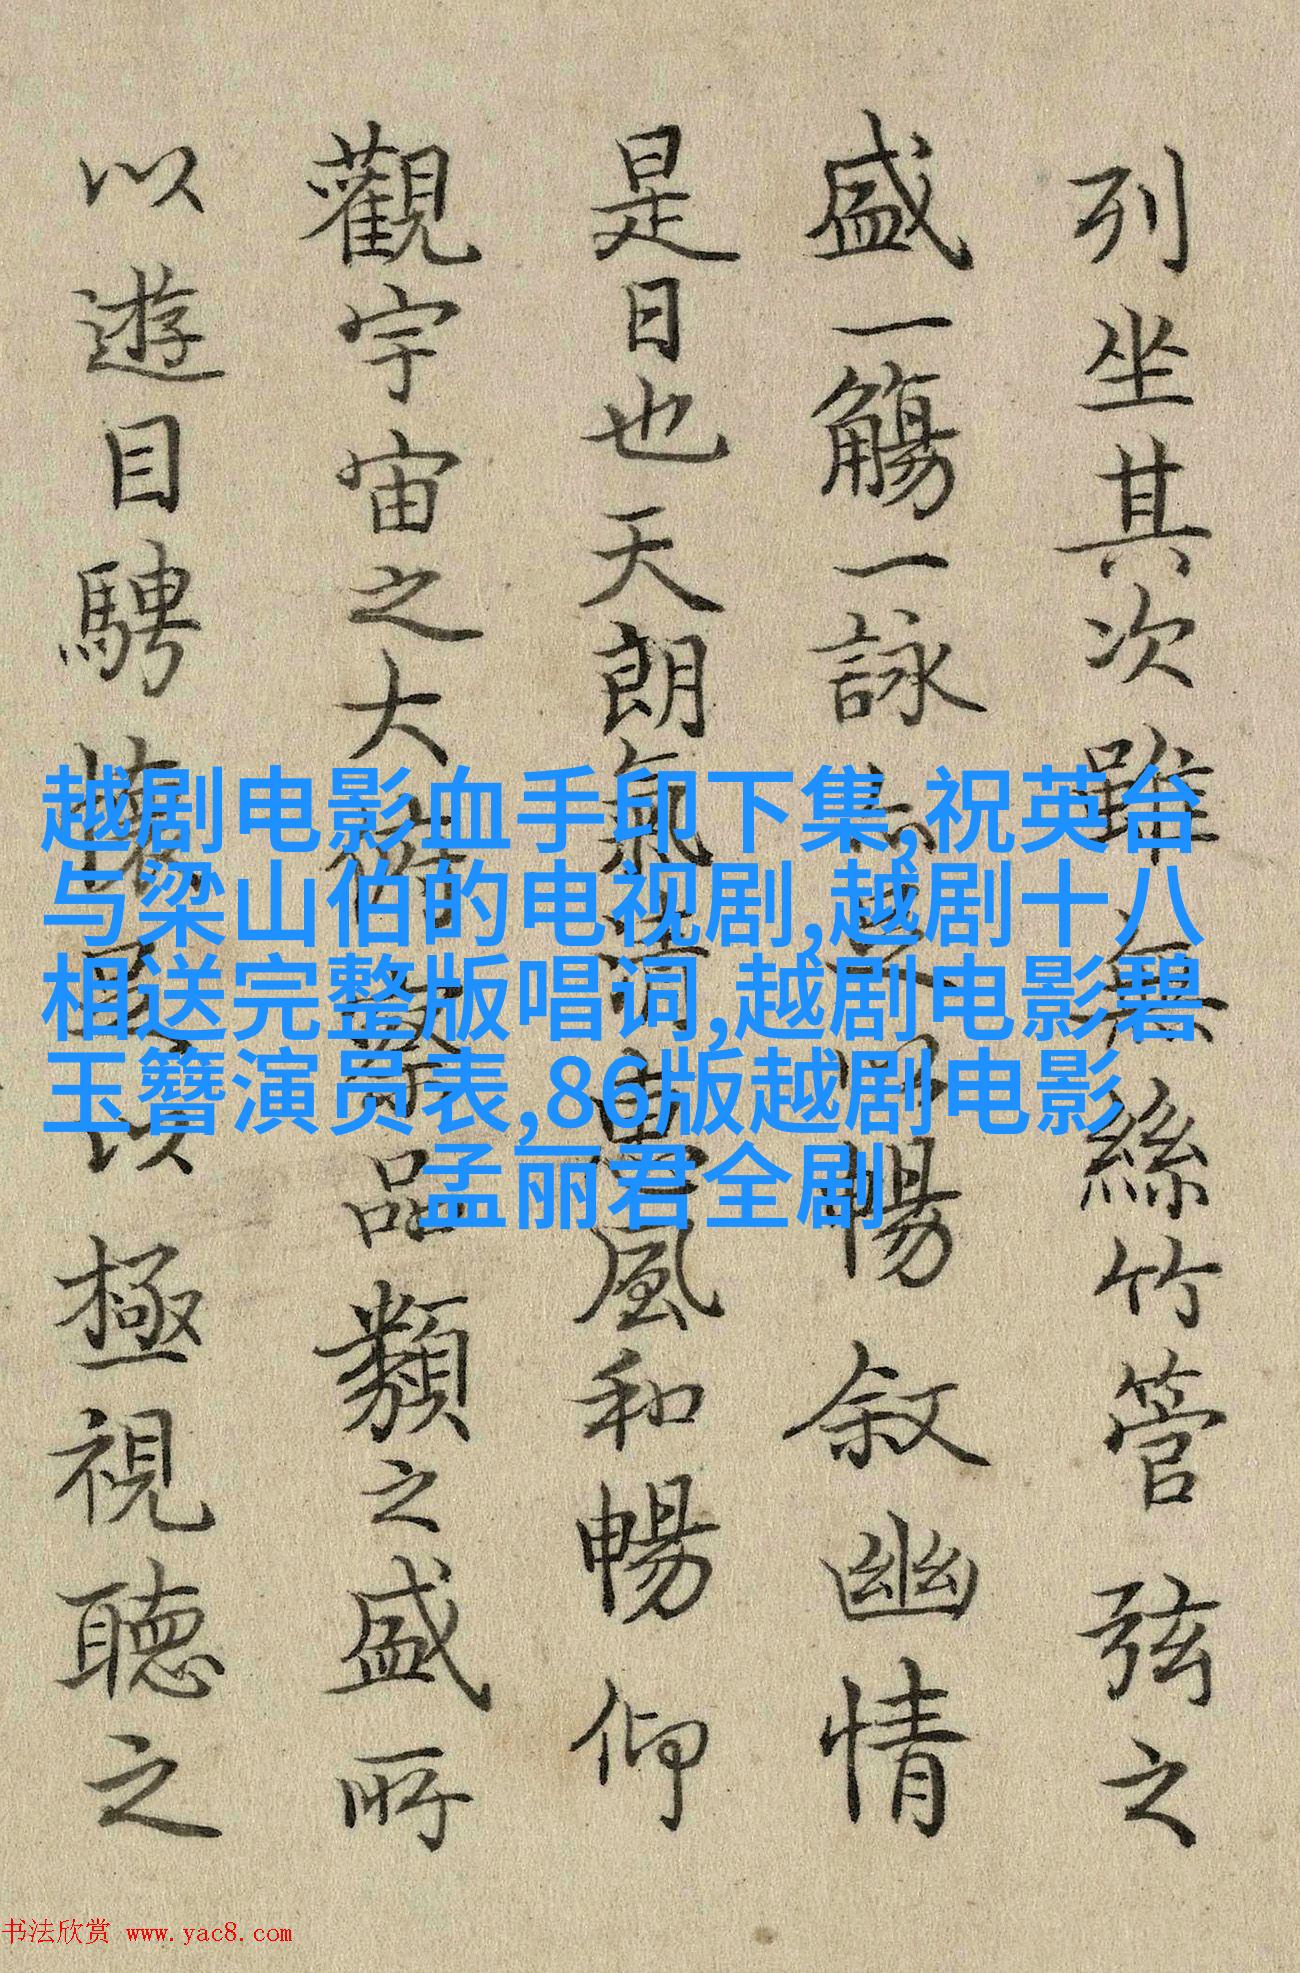 列坐其次雖無絲竹管弦之
盛一觴一詠亦足以暢叙幽情
是日也天朗氣清惠風和暢仰
觀宇宙之大俯察品類之盛所
以遊目騁懷足以極視聽之
越剧电影血手印下集,祝英台
与梁山伯的电视剧,越剧十八
相送完整版唱词,越剧电影碧
玉簪演员表,86版越剧电影
孟丽君全剧
书法欣赏 www.yac8.com